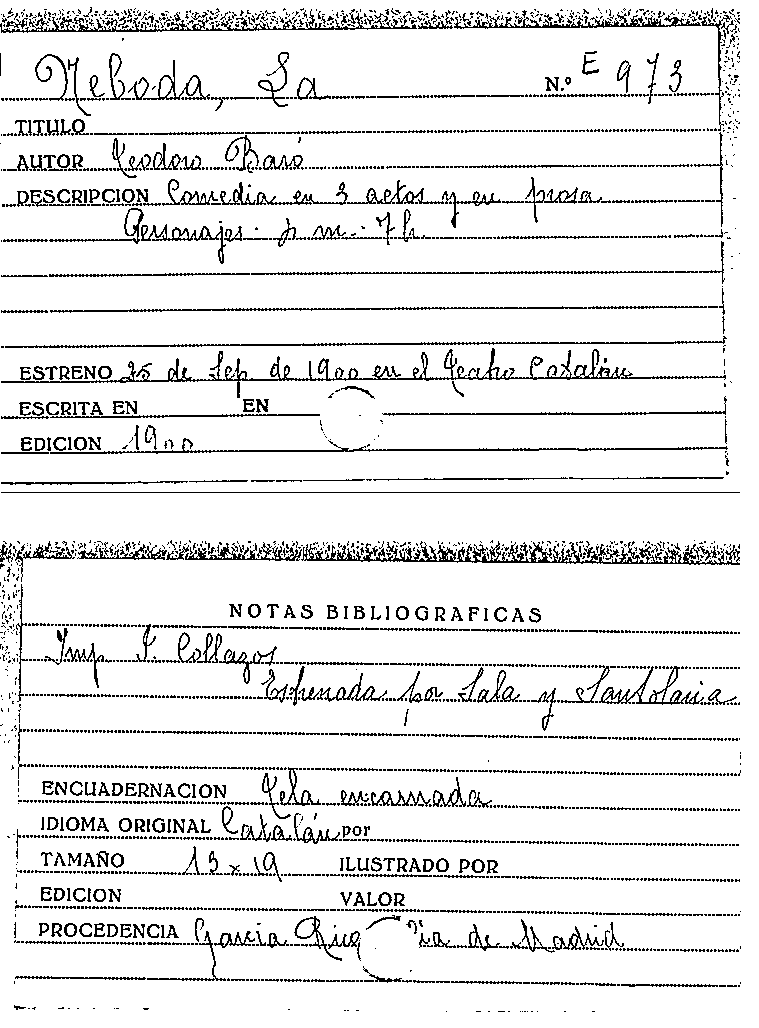 Neboda, La N.º E 973
TITULO
AUTOR Teodoro Baró
DESCRIPCION Comedia en 3 actos y en prosa
Personajes. p m. 7 h.
ESTRENO 25 de Sep. de 1900 en el Teatro Catalán
ESCRITA EN EN
EDICION 1900
NOTAS BIBLIOGRAFICAS
Imp F. Collazos
Estrenada por Sala y Santolaria
ENCUADERNACION Tela encarnada
IDIOMA ORIGINAL Catalán por
TAMAÑO 13 x 19 ILUSTRADO POR
EDICION VALOR
PROCEDENCIA Garcia Rico de Madrid